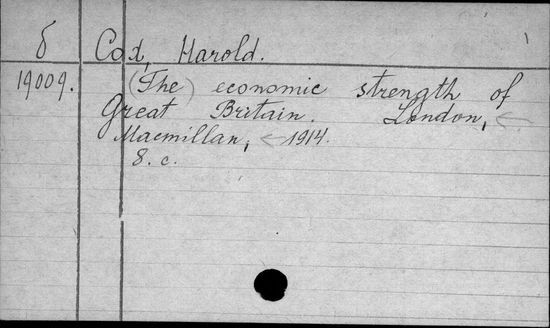 δ Cox, Harold.
19009. (The) economic strength of
Great Britain. London,
Macmillan, 1914.
8. c.